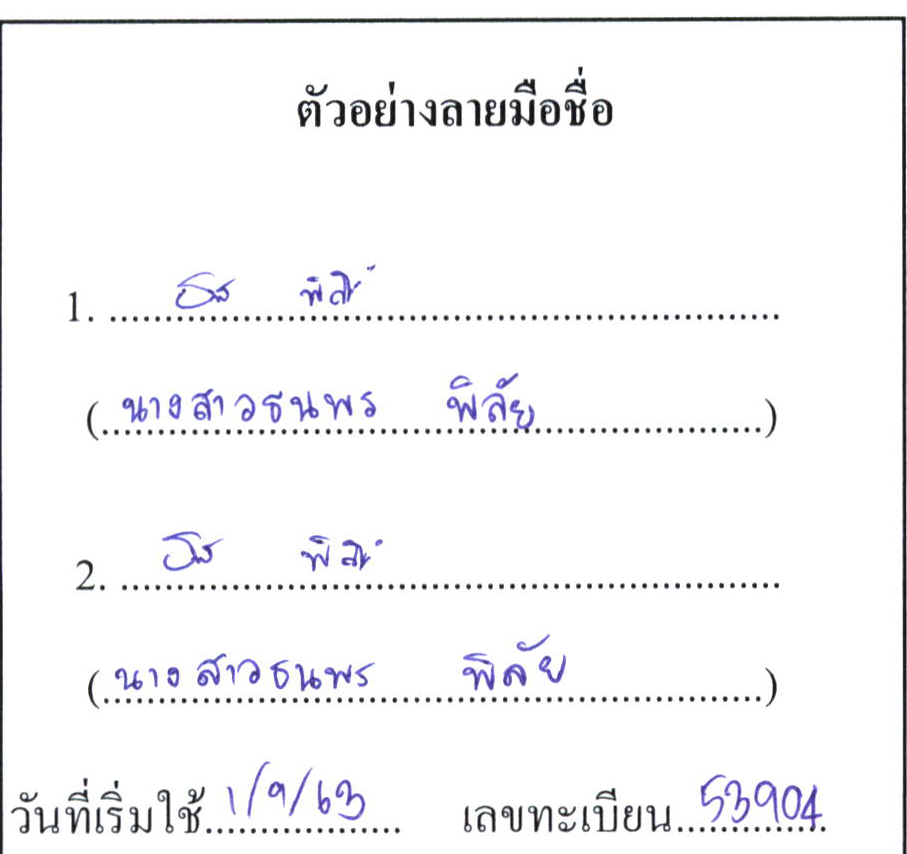 ตัวอย่างลายมือชื่อ
1. พิลัย
(นางสาวธนพร พิลัย)
2. พิลัย
(นางสาวธนพร พิลัย)
วันที่เริ่มใช้ 1/9/63 เลขทะเบียน 53904